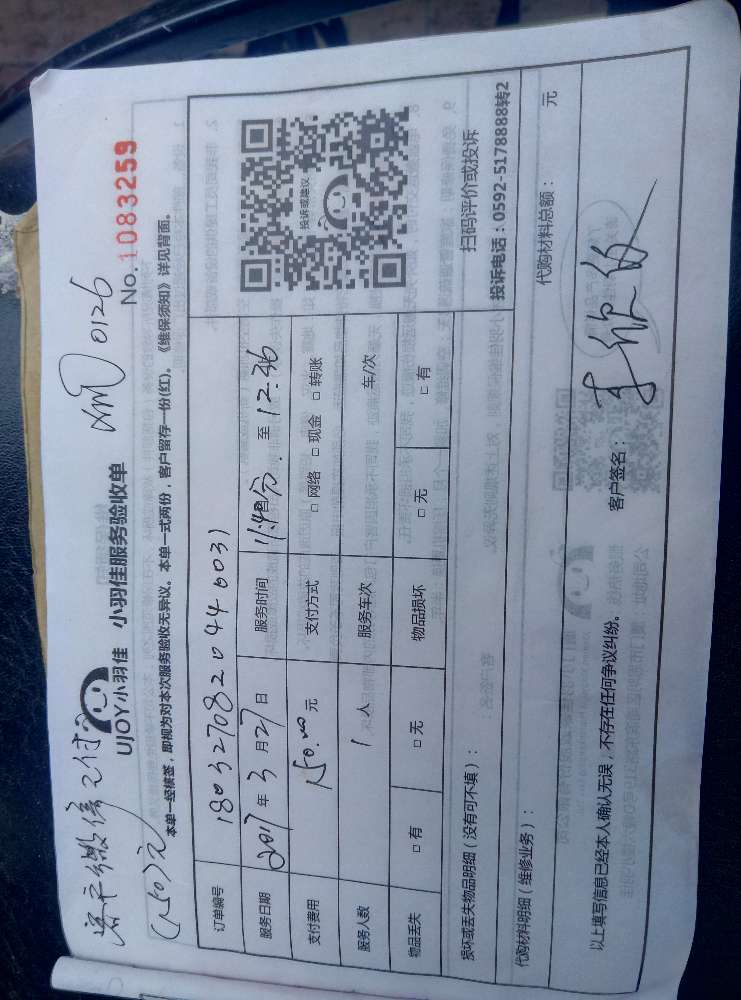 客户微信已付
(150)元
XM 0126
UJOY小羽佳 小羽佳服务验收单
No.1083259
本单一经核签，即视为对本次服务验收无异议。本单一式两份，客户留存一份(红)。《维保须知》详见背面。
订单编号 1803270820446031
服务日期 2017年3月27日 服务时间 11:40分.至12.36
支付费用 150.00元 支付方式 □网络 □现金 □转账
服务人数 1人 服务车次 车/次
物品丢失 □有 □无 物品损坏 □无 □有
投诉或建议
扫码评价或投诉
投诉电话：0592-5178888转2
损坏或丢失物品明细（没有可不填）：
代购材料明细（维修业务）： 代购材料总额： 元
以上填写信息已经本人确认无误，不存在任何争议纠纷。 客户签名：